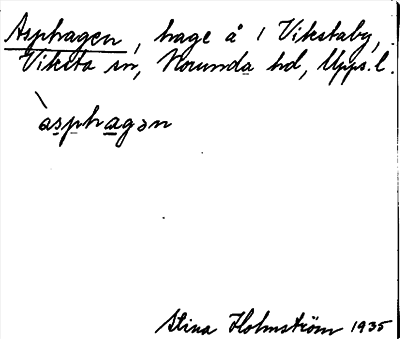 Asphagen, hage å 1 Vikstaby,
Viksta sn, Norunda hd, Upps. l.
àsphagən
Stina Holmström 1935